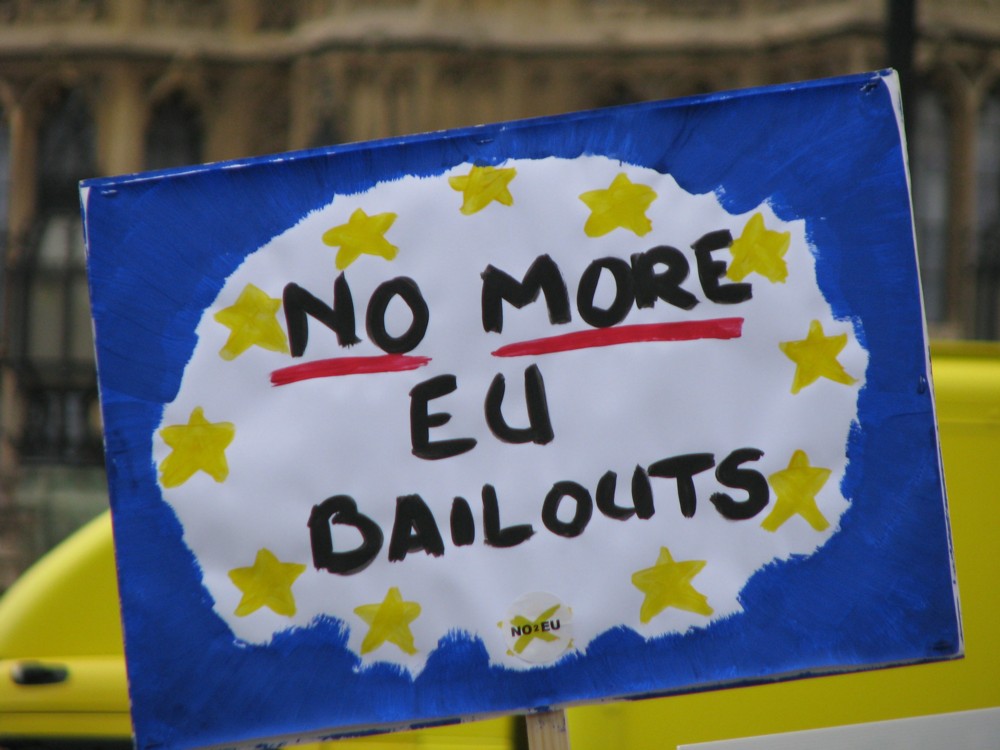 NO MORE
EU
BAILOUTS
NO2EU